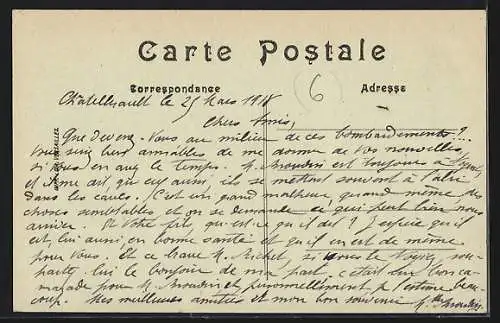 Carte Postale
Correspondance
6
Adresse
Châtellerault le 25 Mars 1918
Chers Amis,
Que devenez-vous au milieu de ces bombardements?
bien aimables de me donner de vos nouvelles,
si vous en avez le temps. M. est toujours à
et qui eux aussi, ils se mettent souvent à l'abri
dans les caves. C'est un grand malheur quand même, des
choses semblables et on se demande ce qui peut bien nous
arriver. Et votre fils, qu'est-ce qu'il dit? J'espère qu'il
est, lui aussi, en bonne santé et qu'il en est de même
pour vous. Et ce brave M. Michel, si vous le voyez, sou-
haitez lui le bonjour de ma part. c'était un bon ca-
marade pour M. et personnellement je l'estime beau-
coup. Mes meilleures amitiés et mon bon souvenir